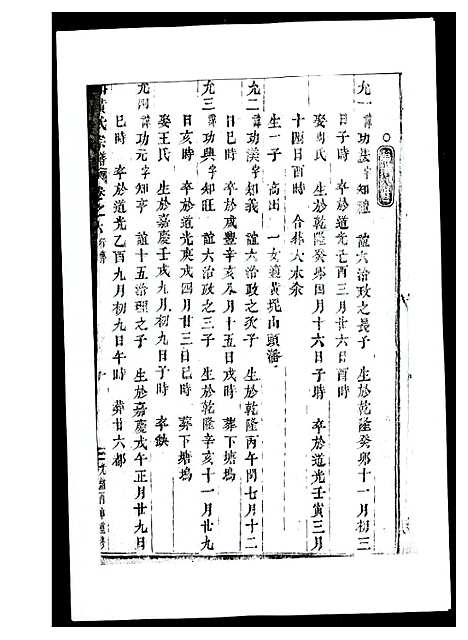 允一 諱功法 字知禮 誼六治政之長子 生於乾隆癸卯十一月初三
日子時 卒於道光己酉三月廿六日酉時
娶周氏 生於乾隆癸卯四月十六日子時 卒於道光壬寅三月
十四日酉時 合葬大水汆
生一子 高出 一女適黃坭山頭潘
允二 諱功渶 字知義 誼六治政之次子 生於乾隆丙午閏七月十二
日巳時 卒於咸豐辛亥八月十五日戌時 葬下塘塢
允三 諱功興 字知旺 誼六治政之三子 生於乾隆辛亥十一月廿九
日亥時 卒於道光庚戌四月廿三日巳時 葬下塘塢
娶王氏 生於嘉慶壬戌九月初九日子時 卒缺
允四 諱功元 字知亨 誼十五治理之子 生於嘉慶戊午正月廿九日
巳時 卒於道光乙酉九月初九日午時 葬廿六都
黃氏宗譜 卷之六 行傳